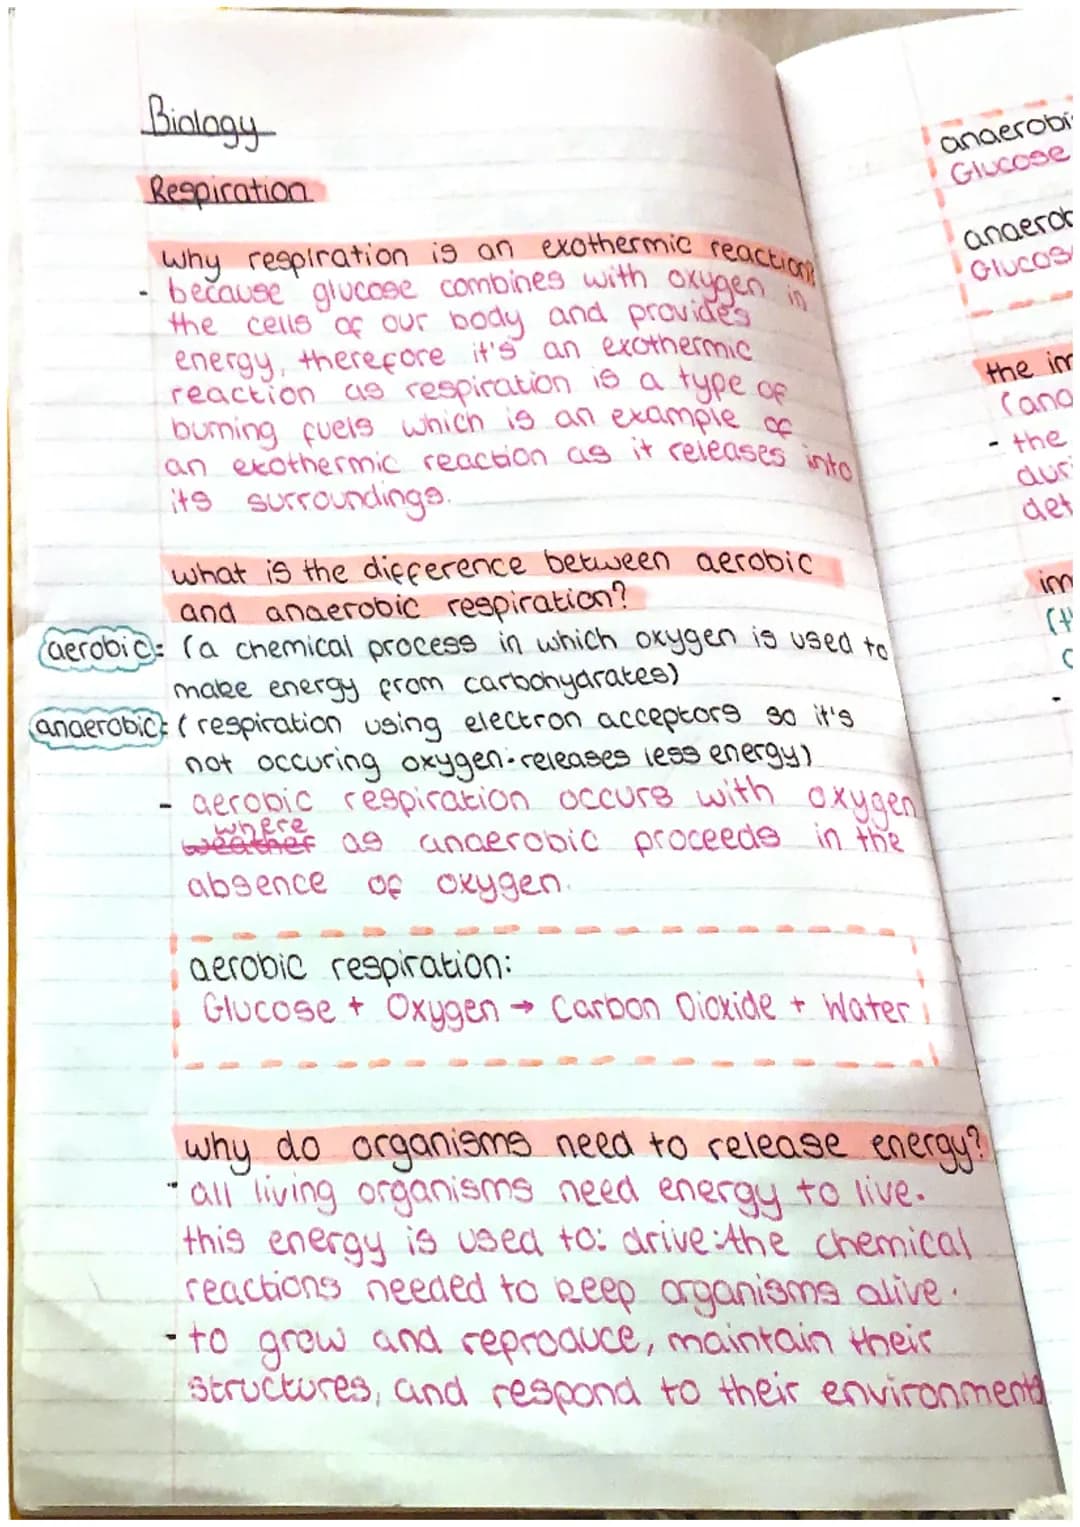 Biology
Respiration
why respiration is an exothermic reaction?
- because glucose combines with oxygen in
the cells of our body and provides
energy, therefore it's an exothermic
reaction as respiration is a type of
burning fuels which is an example of
an exothermic reaction as it releases into
its surroundings.
what is the difference between aerobic
and anaerobic respiration?
aerobic: (a chemical process in which oxygen is used to
make energy from carbohydrates)
anaerobic: (respiration using electron acceptors so it's
not occuring oxygen. releases less energy)
- aerobic respiration occurs with oxygen
where
weather as anaerobic proceeds in the
absence of oxygen.
aerobic respiration:
Glucose + Oxygen → Carbon Dioxide + Water
why do organisms need to release energy?
- all living organisms need energy to live.
this energy is used to: drive: the chemical
reactions needed to keep organisms alive.
- to grow and reproduce, maintain their
structures, and respond to their environments
anaerobi
Glucose
anaerob
Glucos
the im
(ana
- the
duri
det
im
(t
-